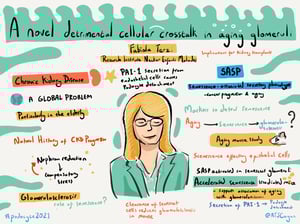 A novel detrimental cellular crosstalk in aging glomeruli
Fabiola Terzi
Research Institute Necker Enfants Malades
Implication for Kidney transplant
Chronic Kidney Disease
A GLOBAL PROBLEM
Particularly in the elderly
PAI-1 secretion from
endothelial cells causes
Podocyte detachment
SASP
Senescence-associated secretory phenotype
Marker to detect senescence
Aging
Senescence
Natural History of CKD Progression
Nephron reduction
compensatory
stress
Glomerulosclerosis
role of senescence?
Aging mouse study
Senescence affecting epithelial cells
SASP activated in senescent glomeruli
Accelerated senescence
with glomerulosclerosis
Secretion of PAI-1
Podocyte
detachment
Clearance of senescent
cells reduces glomerulosclerosis
in mice
#podocyte2021